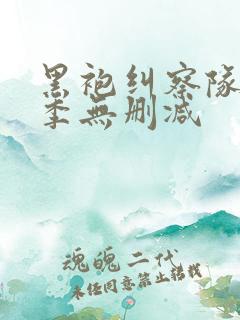 黑袍纠察队
季無删减
魂魄二代
未经同意禁止转载